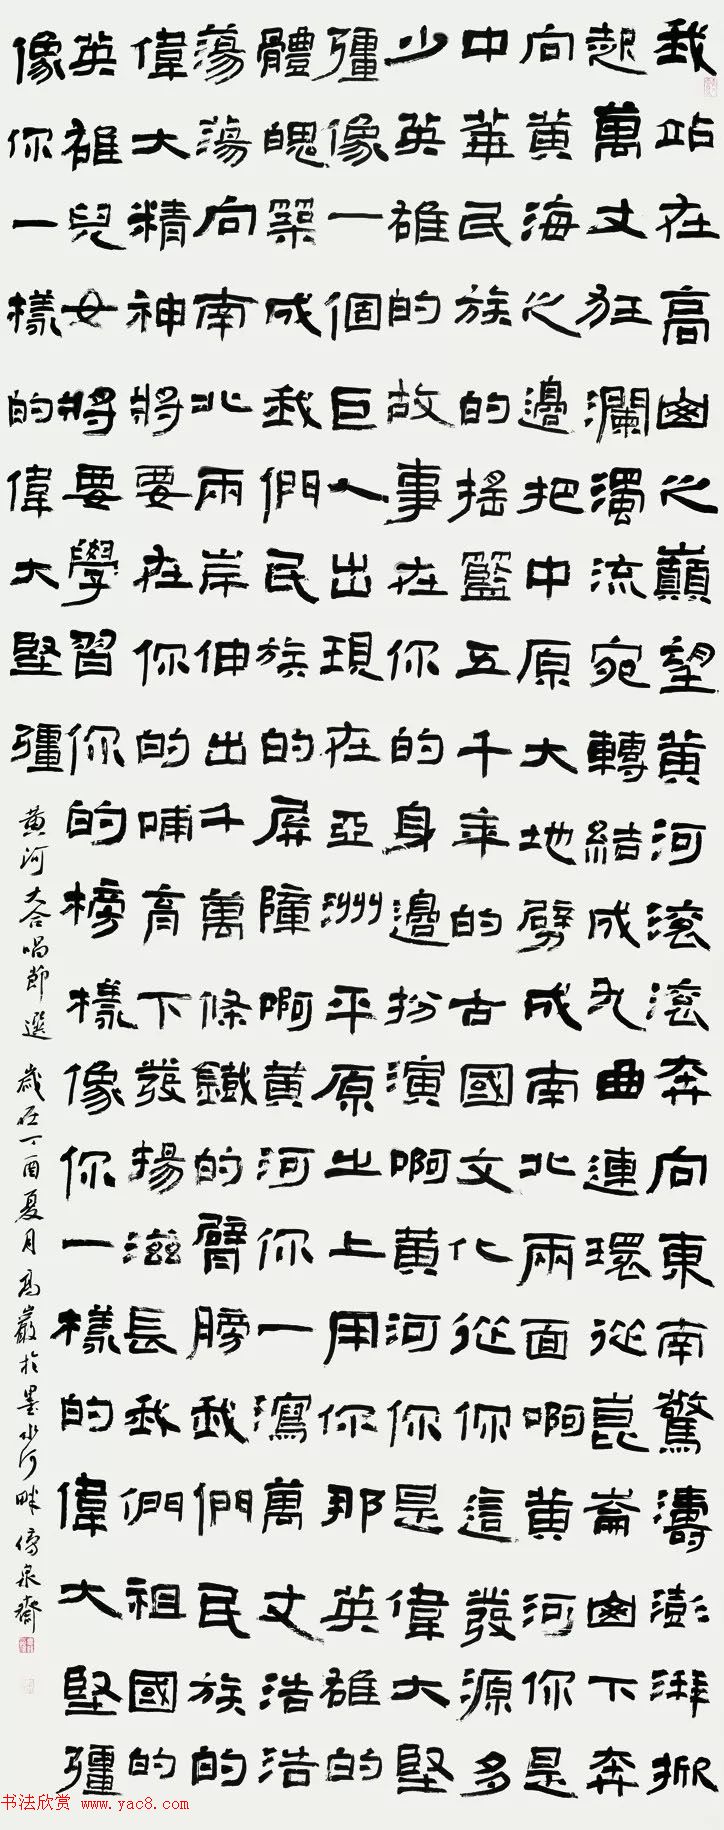 我站在高山之巔望黃河滾滾奔向東南驚濤澎湃掀
起萬丈狂瀾濁流宛轉結成九曲連環從崑崙山下奔
向黃海之邊把中原大地劈成南北兩面啊黃河你是
中華民族的搖籃五千年的古國文化從你這發源多
少英雄的故事在你的身邊扮演啊黃河你是偉大堅
彊像一個巨人出現在亞洲平原之上用你那英雄的
體魄築成我們民族的屏障啊黃河你一瀉萬丈浩浩
蕩蕩向南北兩岸伸出千萬條鐵的臂膀我們民族的
偉大精神將要在你的哺育下發揚滋長我們祖國的
英雄兒女將要學習你的榜樣像你一樣的偉大堅彊
像你一樣的偉大堅彊
黃河大合唱節選 歲在丁酉夏月高巖於墨水河畔傳泉齋
书法欣赏 www.yac8.com